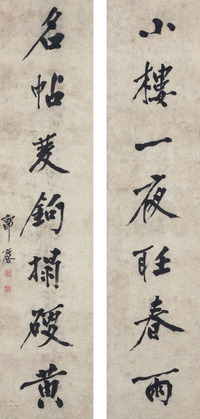 小樓一夜聽春雨
名帖雙鉤搨硬黃
郭麐